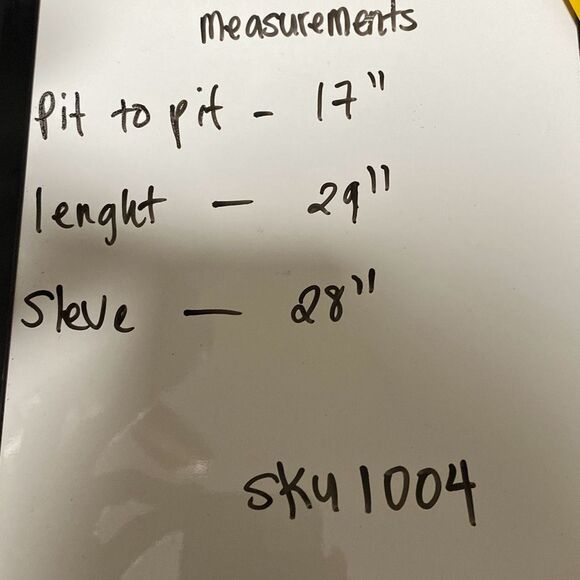 measurements
Pit to pit - 17"
lenght - 29"
Sleve - 28"
SKU 1004